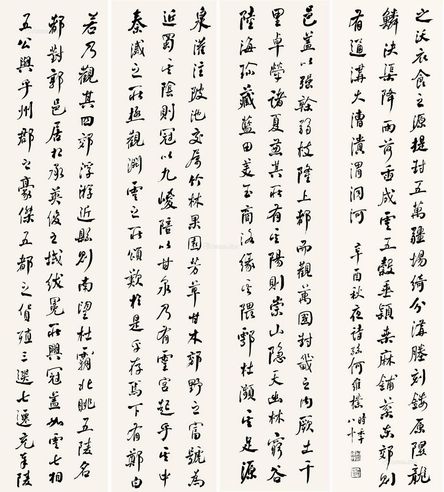 若乃觀其四郊浮游近縣則南望杜霸北眺五陵名
都對郭邑居相承英俊之域紱冕所興冠蓋如雲七相
五公與乎州郡之豪傑五都之貨殖三選七遷充奉陵
邑蓋以強幹弱枝隆上都而觀萬國封畿之內厥土千
里卓犖諸夏兼其所有其陽則崇山隱天幽林窮谷
陸海珍藏藍田美玉商洛緣其隈鄠杜濱其足源
泉灌注陂池交屬竹林果園芳草甘木郊野之富號為
近蜀其陰則冠以九嵕陪以甘泉乃有靈宮起乎其中
秦漢之所極觀淵雲之所頌歎於是乎存焉下有鄭白
之沃衣食之源提封五萬疆場綺分溝塍刻鏤原隰龍
鱗決渠降雨荷臿成雲五穀垂穎桑麻鋪棻東郊則
有通溝大漕潰渭洞河 辛酉秋夜詩孫何維樸時年八十